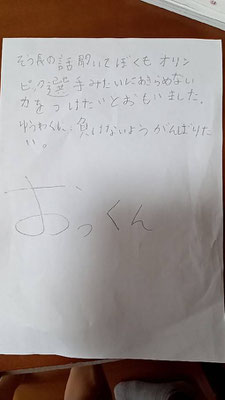 そつ長の話聞いてぼくも オリン
ピック選手みたいにあきらめない
力をつけたいとおもいました。
ゆうわくに負けないようがんばりた
い。
おっくん